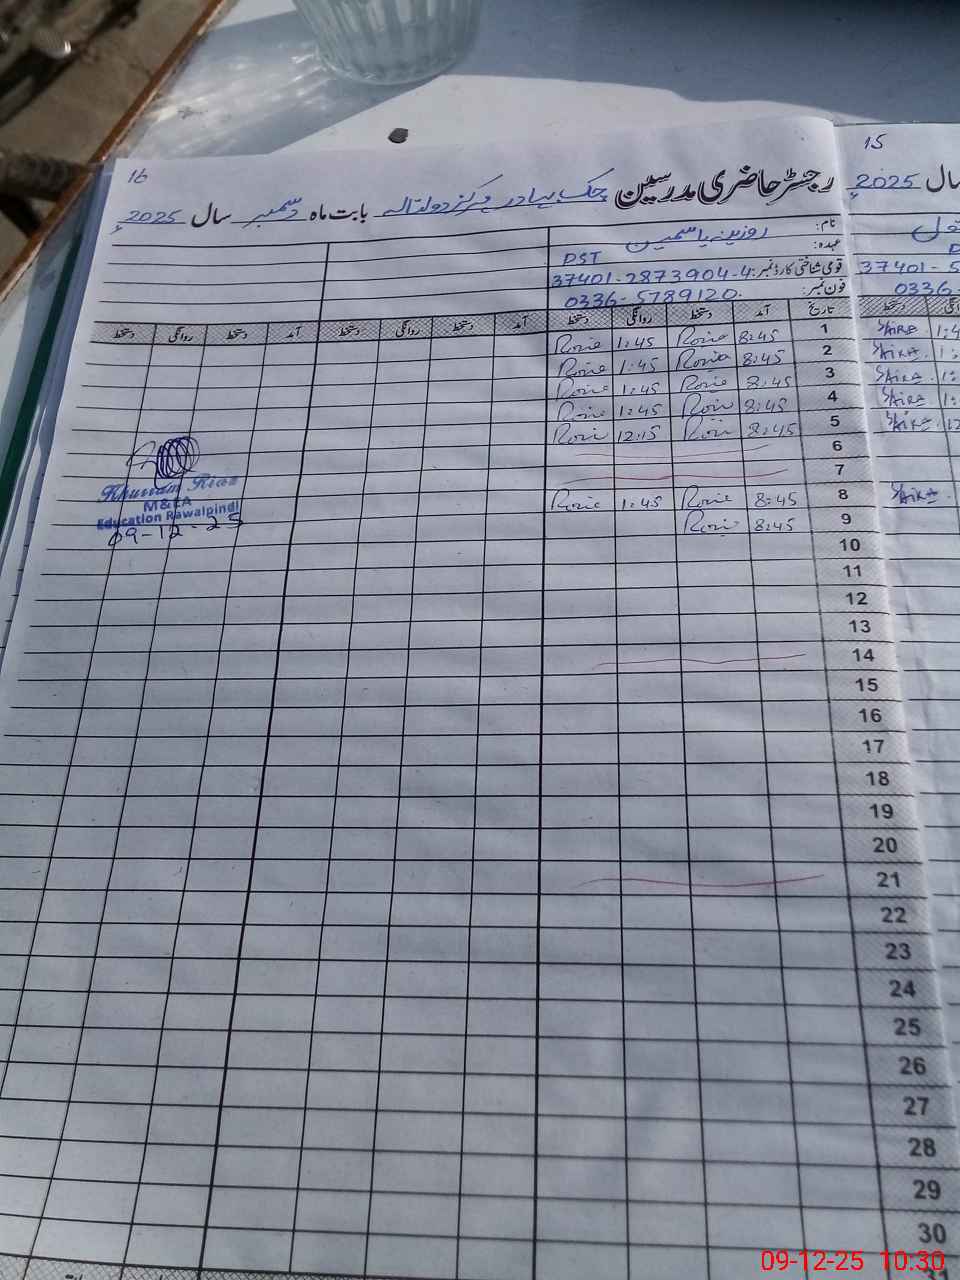 16
رجسٹر حاضری مدرسین چک بہادر مرکز دولتالہ بابت ماہ دسمبر سال 2025ء
نام: روزینہ یاسمین
عہدہ: PST
قومی شناختی کارڈ نمبر: 37401-2873904-4
فون نمبر: 0336-5789120
تاریخ آمد دستخط روانگی دستخط آمد دستخط روانگی دستخط آمد دستخط روانگی دستخط
1 8:45 Rozie 1:45 Rozie
2 8:45 Rozie 1:45 Rozie
3 8:45 Rozie 1:45 Rozie
4 8:45 Rozie 1:45 Rozie
5 8:45 Rozie 12:15 Rozie
6
7
8 8:45 Rozie 1:45 Rozie
9 8:45 Rozie
10
11
12
13
14
15
16
17
18
19
20
21
22
23
24
25
26
27
28
29
30
31
Khurram Riaz
M&EA
Education Rawalpindi
09-12-25
15
سال 2025ء
37401-5
0336-
دستخط
SAIRA 1:4
SAIRA 1:
SAIRA 1:
SAIRA 1:
SAIRA 12
SAIRA
09-12-25 10:30